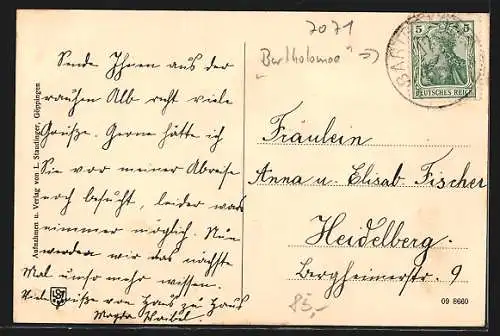 Sende Ihnen aus der
rauhen Alb recht viele
Grüße. Gerne hätte ich
Sie vor meiner Abreise
noch besucht, leider war
nimmer möglich. Nun
werden wir das nächste
Mal umso mehr wissen.
Viel Grüße von Haus zu Haus
Magda
Aufnahmen u. Verlag von L. Staudinger, Göppingen
7071
"Bartholomae" =>
5 5
DEUTSCHES REICH
Fräulein
Anna u. Elisab. Fischer
Heidelberg.
Bergheimerstr. 9
85,-
09 8660